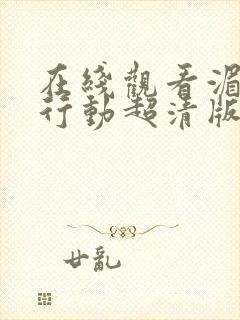 在綫觀看湄
行動超清版
廿亂